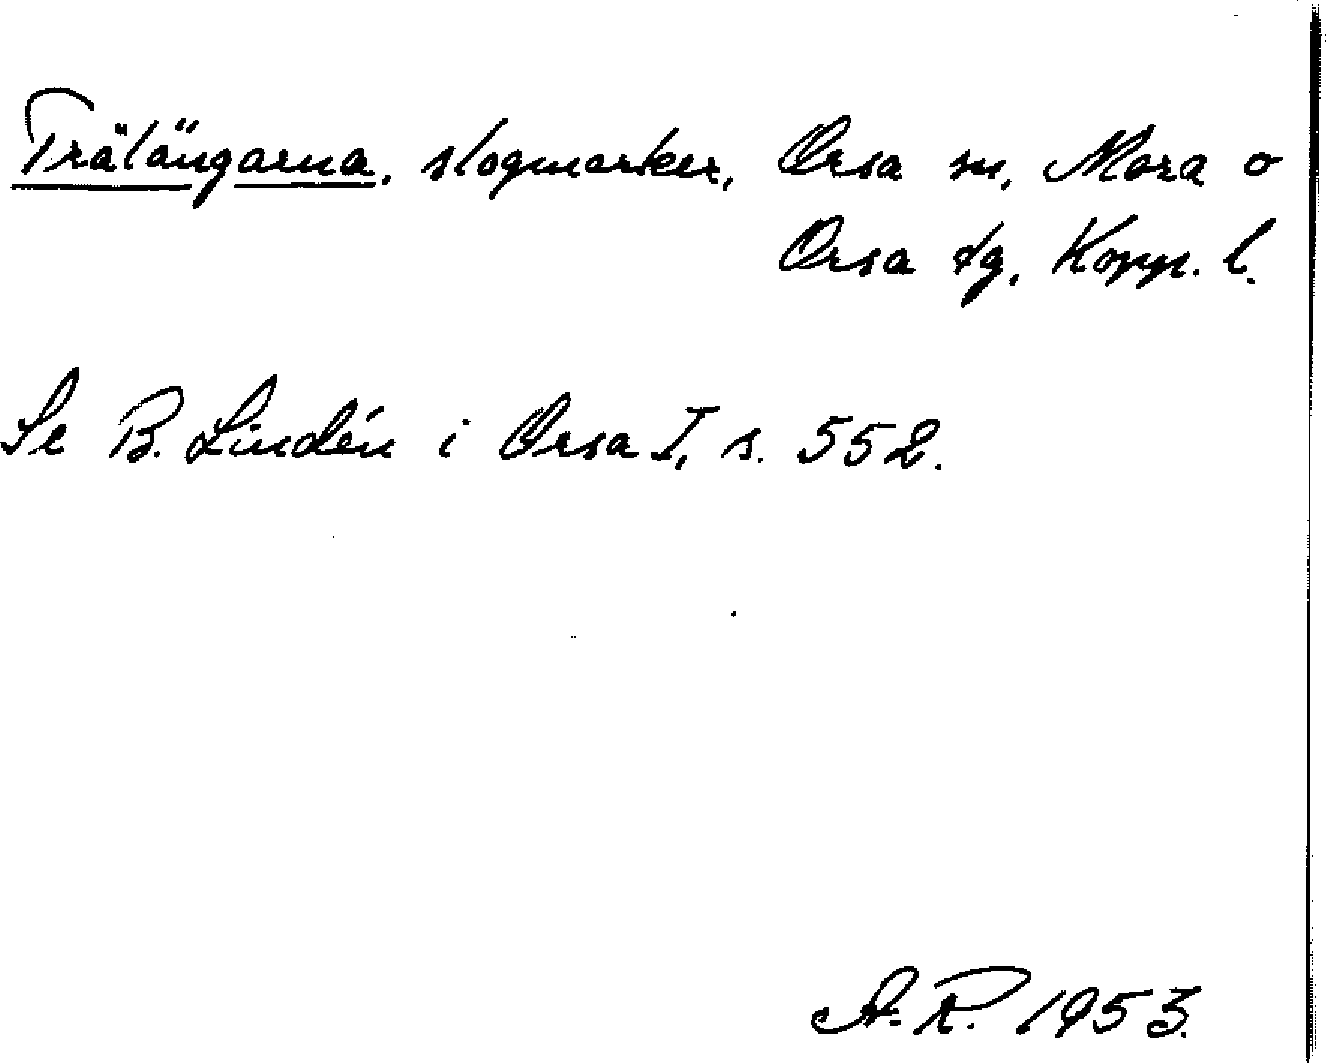 Trälängarna, slogmarker, Orsa sn, Mora o
Orsa tg, Kopp. l.
Se B. Lindén i Orsa I, s. 552.
A. R. 1953.